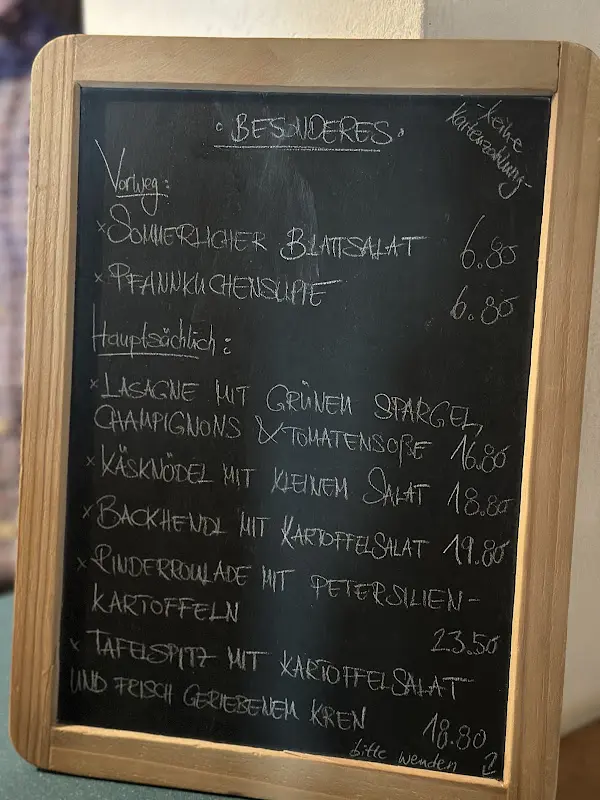 · BESONDERES ·
-keine
Kartenzahlung-
Vorweg:
× SOMMERLICHER BLATTSALAT 6.80
× PFANNKUCHENSUPPE 6.80
Hauptsächlich:
× LASAGNE MIT GRÜNEM SPARGEL,
CHAMPIGNONS & TOMATENSOßE 16.80
× KÄSKNÖDEL MIT KLEINEM SALAT 18.80
× BACKHENDL MIT KARTOFFELSALAT 19.80
× RINDERROULADE MIT PETERSILIEN-
KARTOFFELN 23.50
× TAFELSPITZ MIT KARTOFFELSALAT
UND FRISCH GERIEBENEM KREN 18.80
bitte wenden